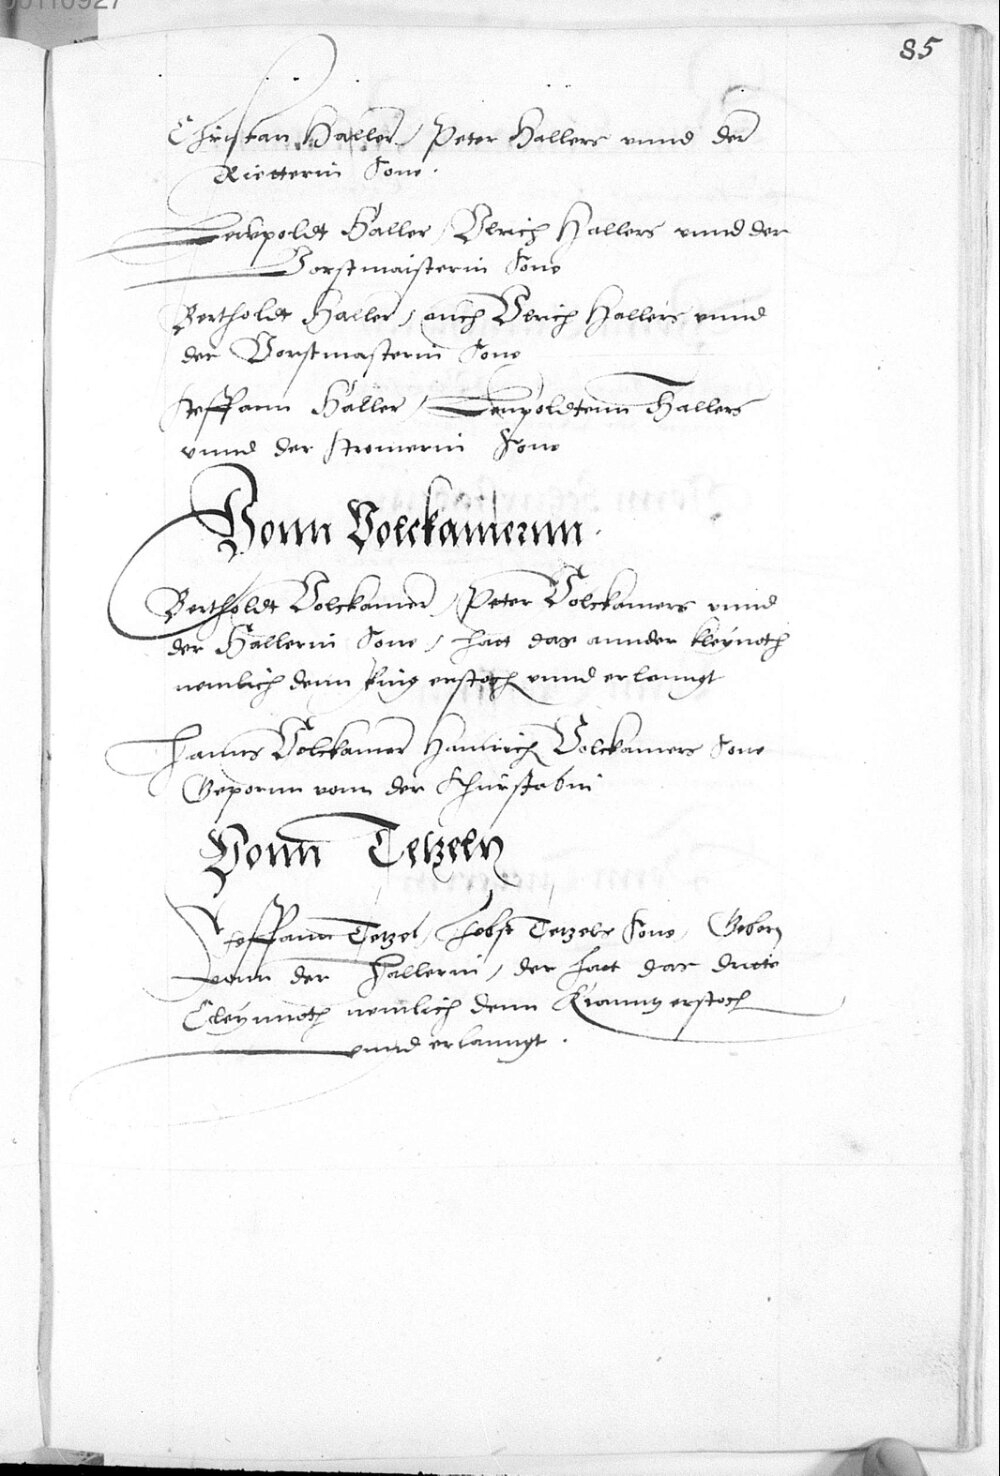 85
Christan Haller / Peter Hallers vnnd der
Rietterin Sone .
Leupoldt Haller / Vlrich Hallers vnnd der
Vorstmaisterin Sone
Bertholdt Haller / auch Vlrich Hallers vnnd
der Vorstmasterin Sone
Steffann Haller / Leupoldtenn Hallers
vnnd der Stromerin Sone
Vonn Volckamernn .
Bertholdt Volckamer / Peter Volckamers vnnd
der Hallerin Sone / hatt das annder kleynoth
nemlich denn Ring erstoch vnnd erlanngt
Hanns Volckamer Hainrich Volckamers Sone
Gepornn vonn der Schürstabin
Vonn Tetzeln
Steffann Tetzel / Jobst Tetzels Sone / Geborn
vonn der Hallerin / der hatt das dritte
Cleynnoth nemlich denn Kranntz erstoch
vnnd erlanngt .